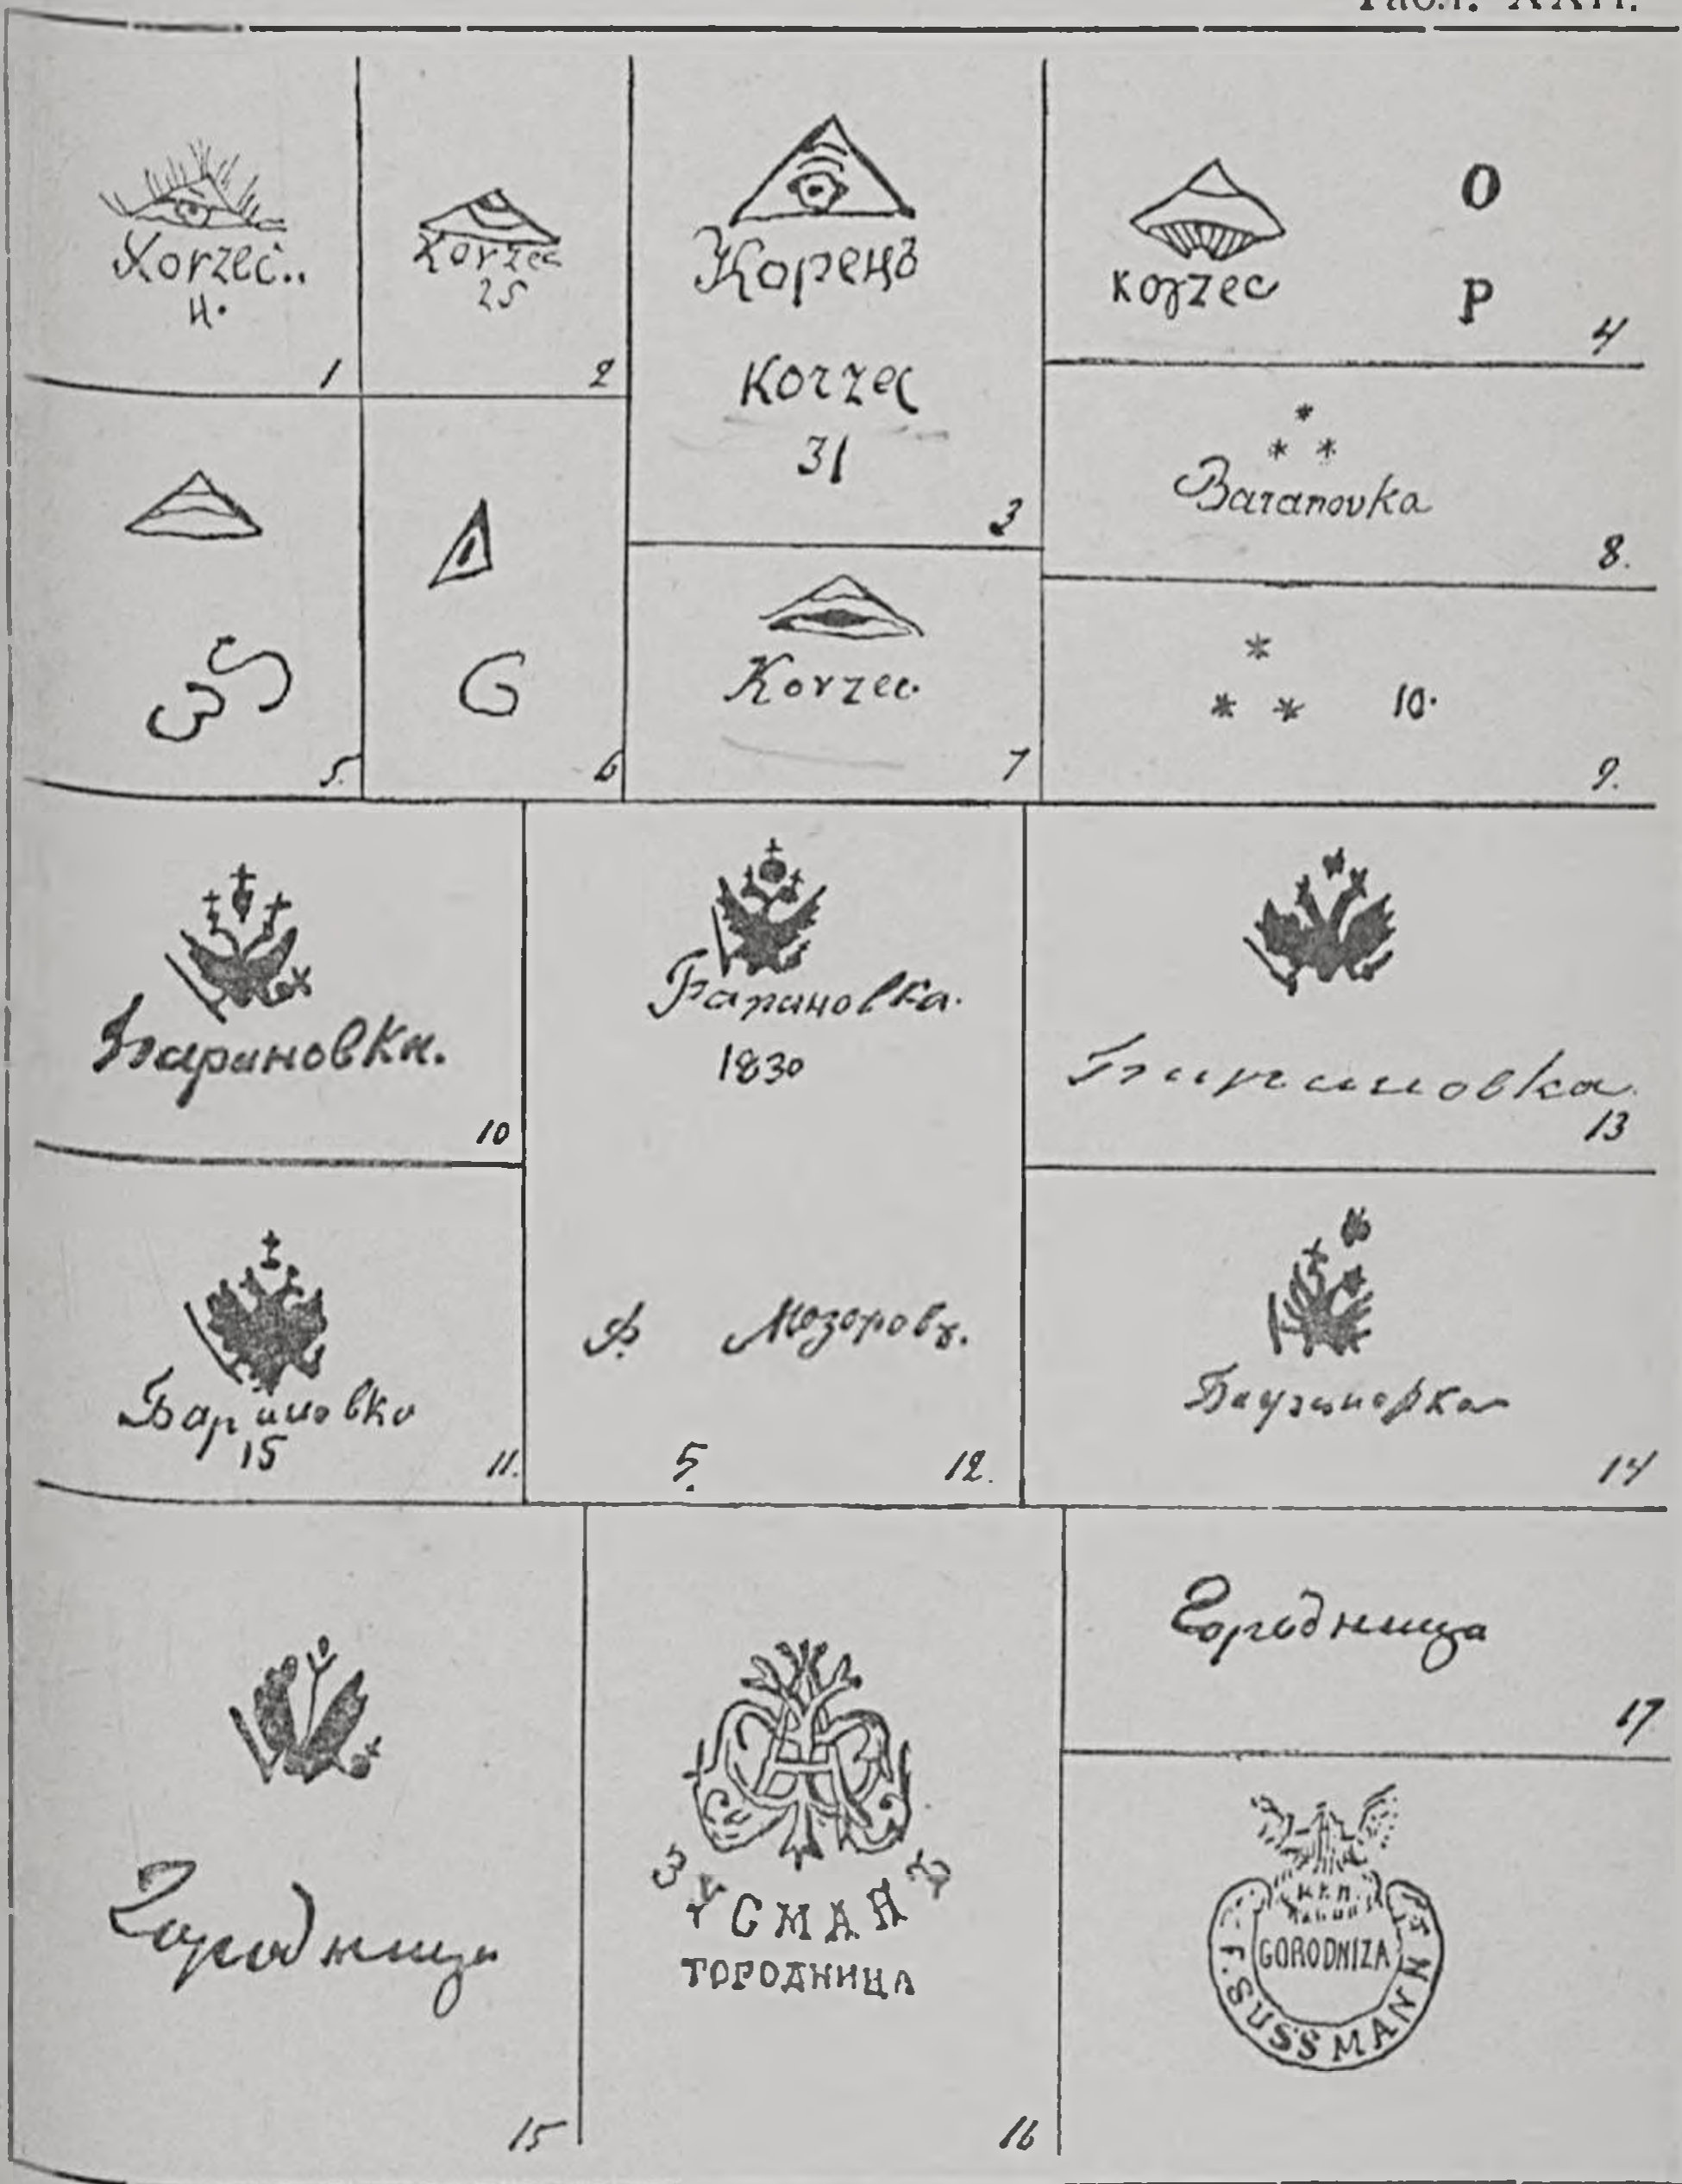 Табл. XXII.
Korzec..
4.
1
Korzec
25
2
Корецъ
Korzec
31
3
Korzec
O
P
4
5.
G
6
Korzec.
7
Baranovka
8.
10.
9.
Барановка.
10
Барановка
15
11.
Барановка.
1830
Ф. Мозоровъ.
5.
12.
Барановка.
13
Барановка
14
Городница
15
ЗУСМАНЪ
ГОРОДНИЦА
16
Городница
17
GORODNIZA
F. SUSSMANN